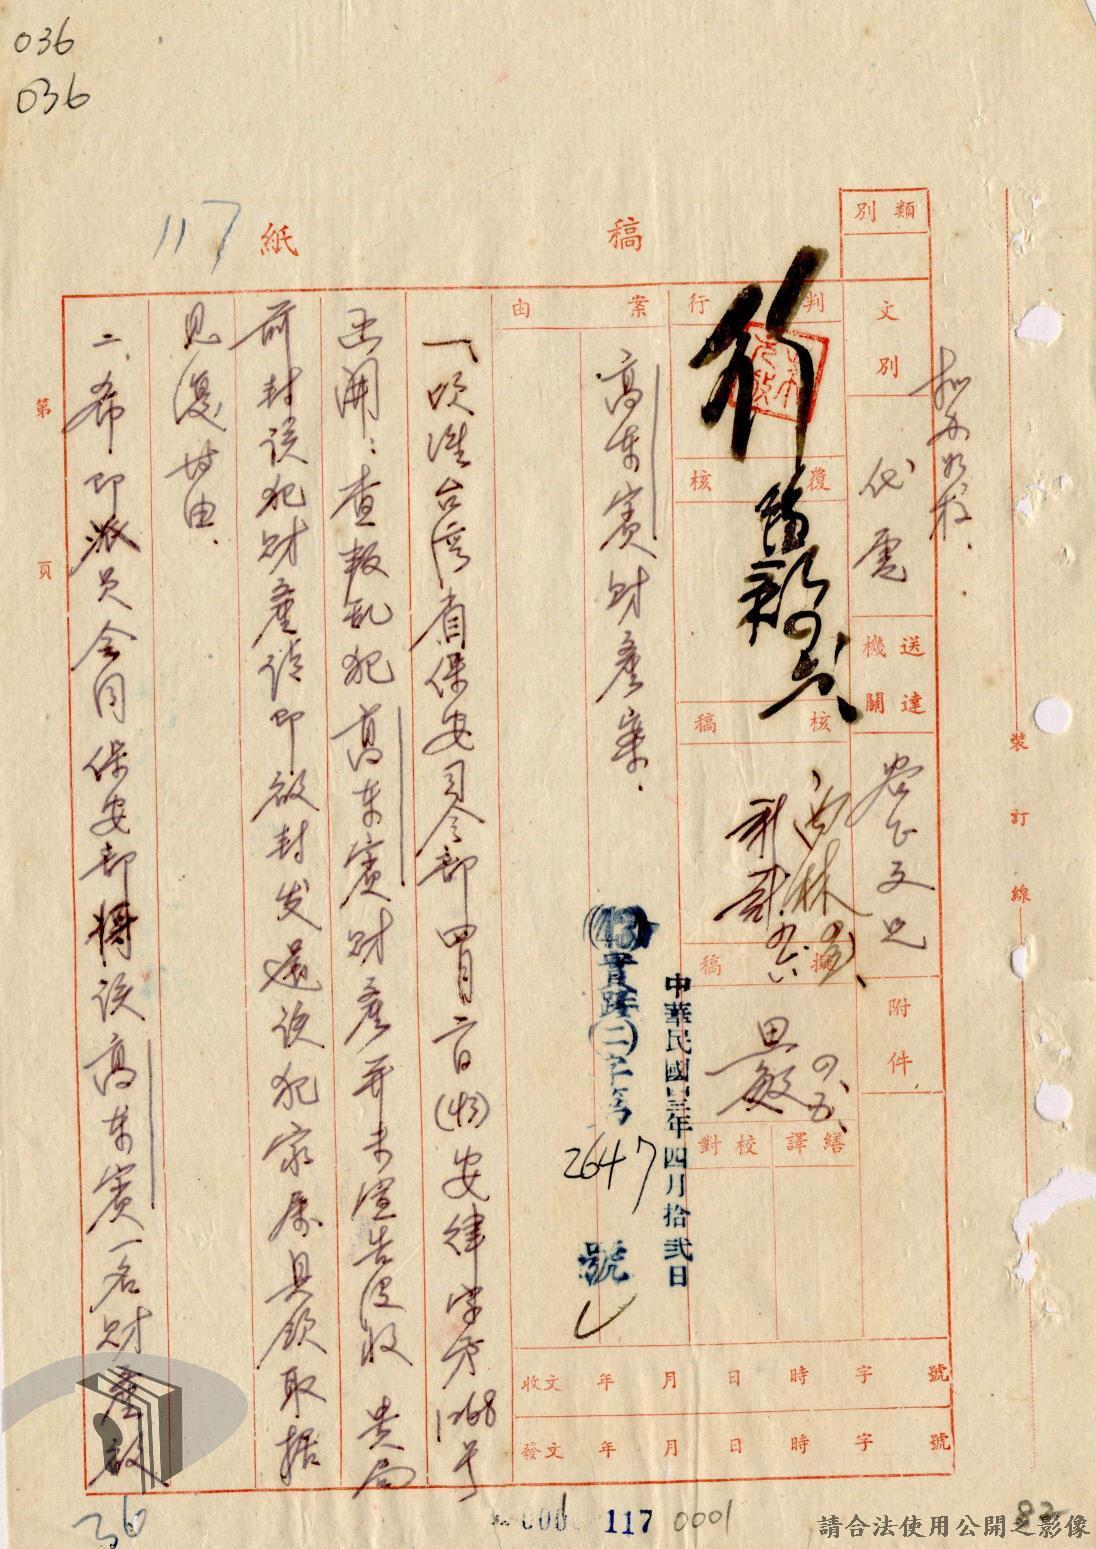 036
036
117
稿紙
類別
文別
代電
送達機關
附件
判行
行
覆核
核稿
擬稿
繕譯
校對
案由
高東賓財產案．
中華民國四三年四月拾弍日
(43)
(二)字第
2647
號
一、頃准台湾省保安司令部四月二日(43)安律字第1268号
函開：查叛乱犯高東賓財產並未宣告沒收貴局
前封該犯財產請即啟封发還該犯家屬具領取据
見復等由．
二、希即派員会同保安部將該高東賓一名財產啟
收文 年 月 日 時 字 號
發文 年 月 日 時 字 號
第 頁
裝訂線
36
117 0001
82
請合法使用公開之影像